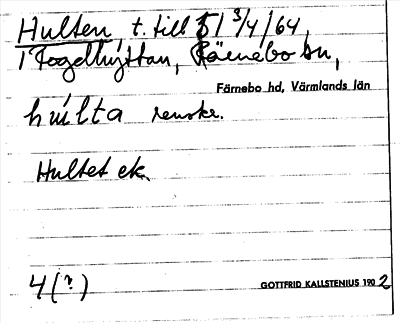 Hulten, t. till 51 3/4/64,
1 Fogelhyttan, Färnebo sn,
Färnebo hd, Värmlands län
hulta
Hultet ek.
4(?)
GOTTFRID KALLSTENIUS 1902